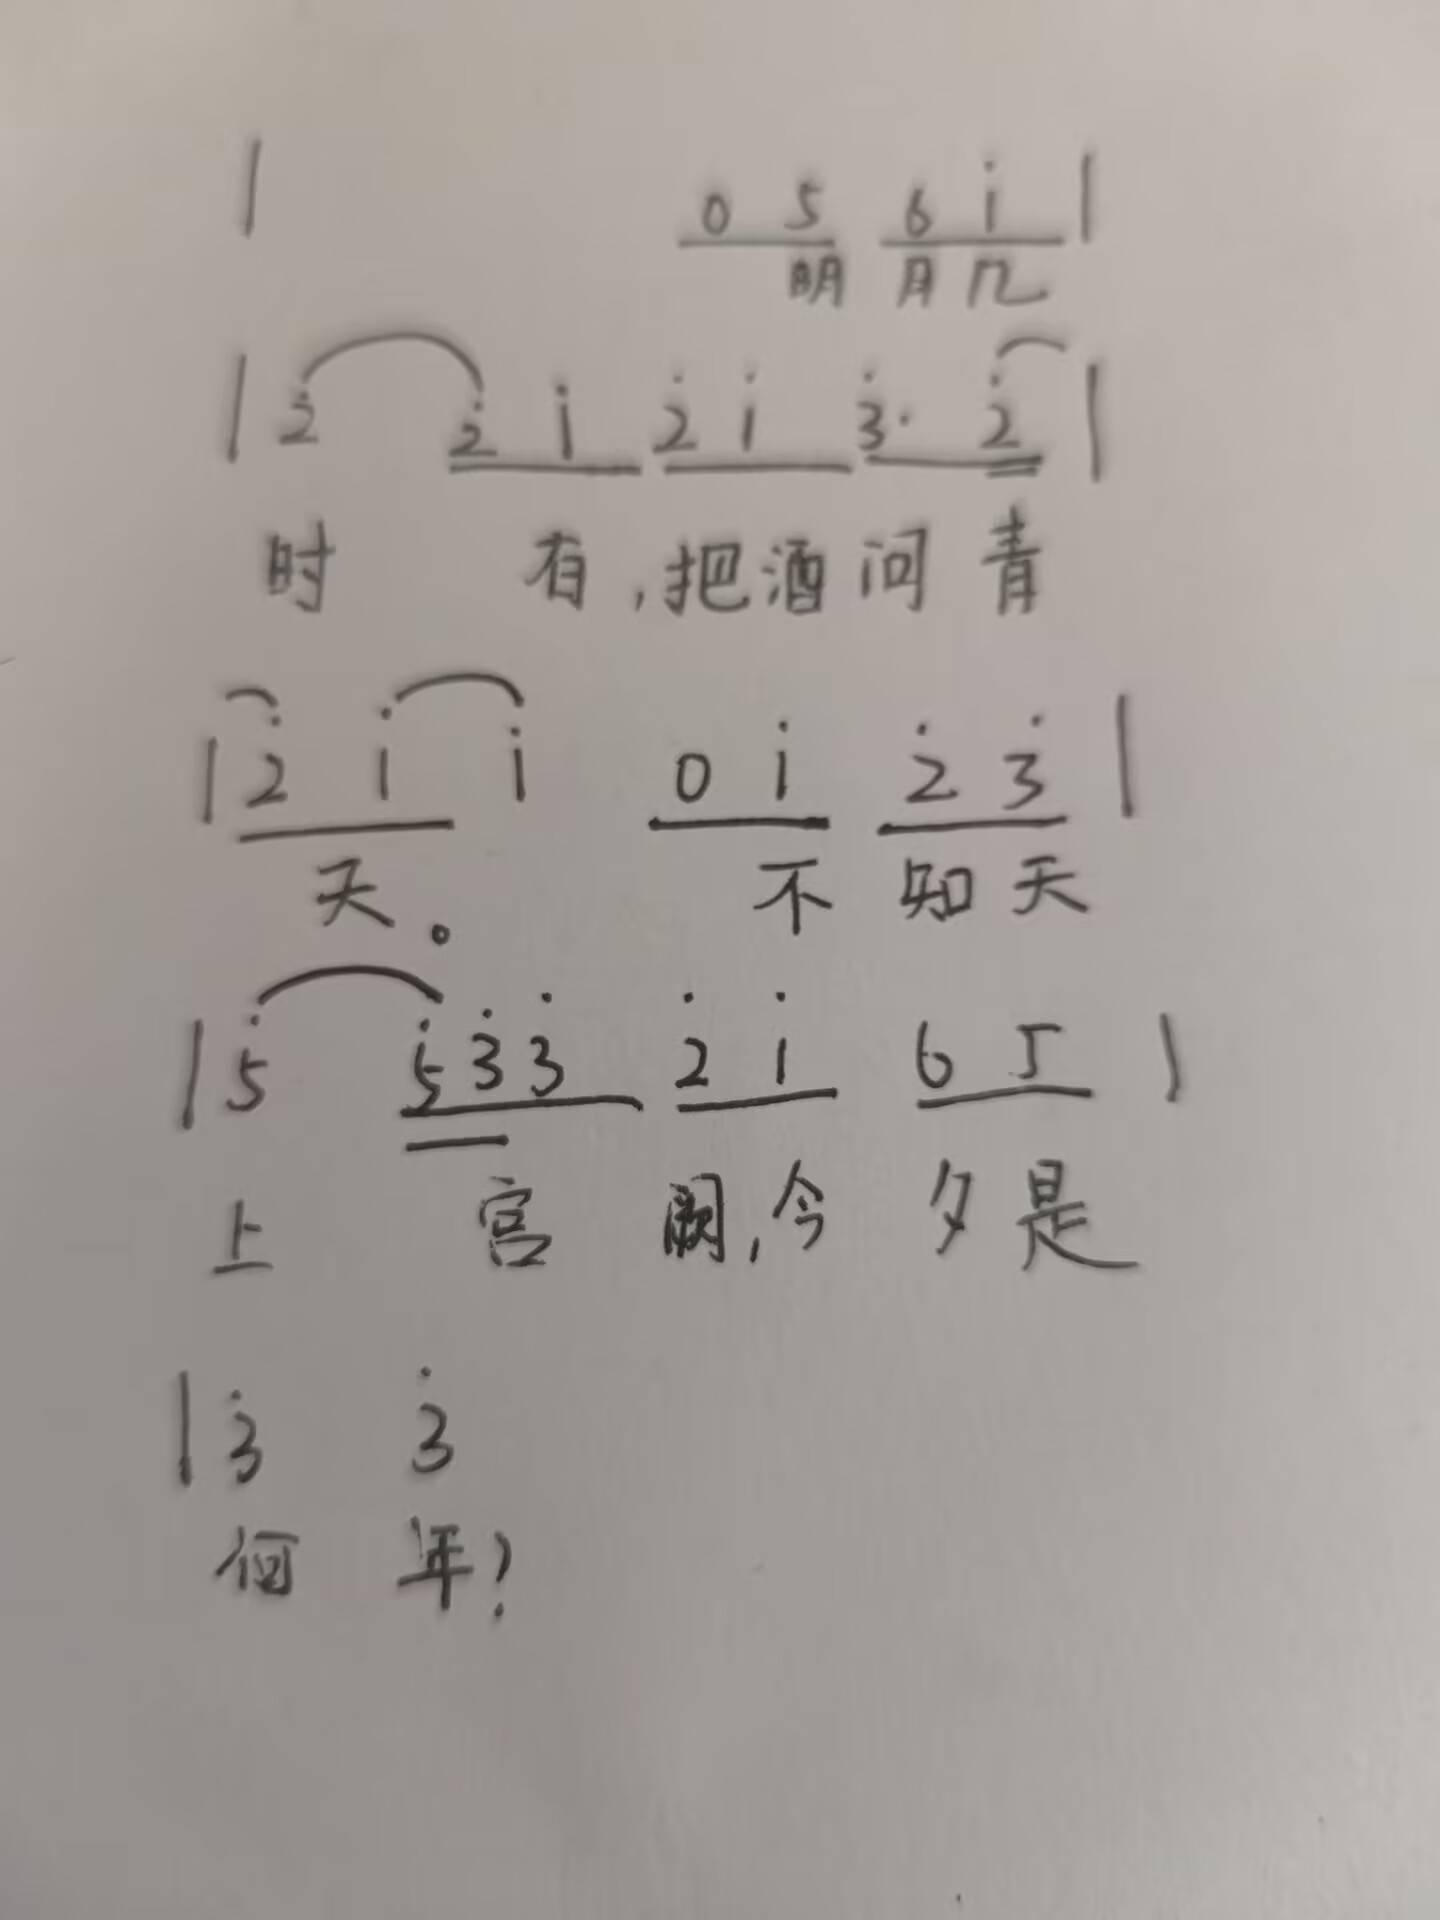 | 0 5 6 i |
明 月 几
| 2 2 i 2 i 3· 2 |
时 有，把 酒 问 青
| 2 i i 0 i 2 3 |
天。 不 知 天
| 5 5 3 3 2 i 6 5 |
上 宫 阙，今 夕 是
| 3 3
何 年？